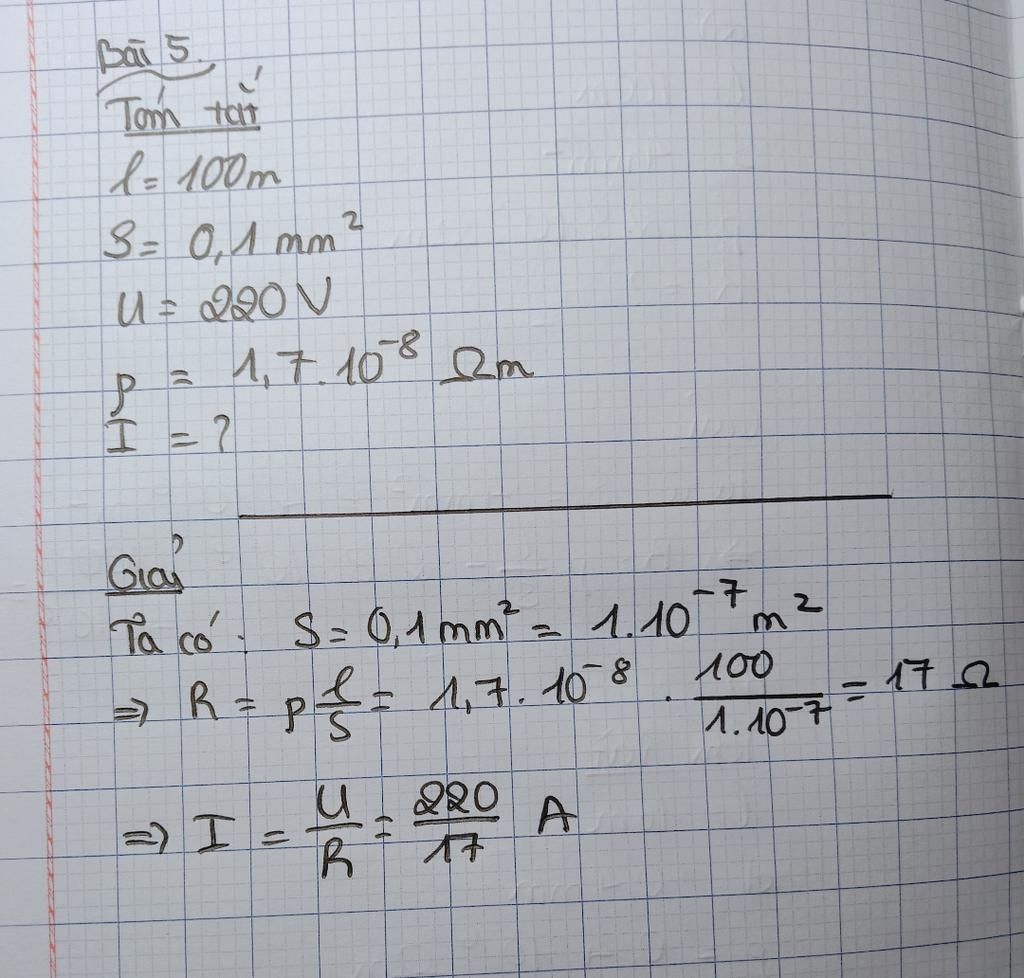 Bài 5.
Tóm tắt
l = 100m
S = 0,1 mm²
U = 220 V
ρ = 1,7.10⁻⁸ Ωm
I = ?
Giải
Ta có: S = 0,1 mm² = 1.10⁻⁷ m²
⇒ R = ρ l/S = 1,7.10⁻⁸ . 100/1.10⁻⁷ = 17 Ω
⇒ I = U/R = 220/17 A